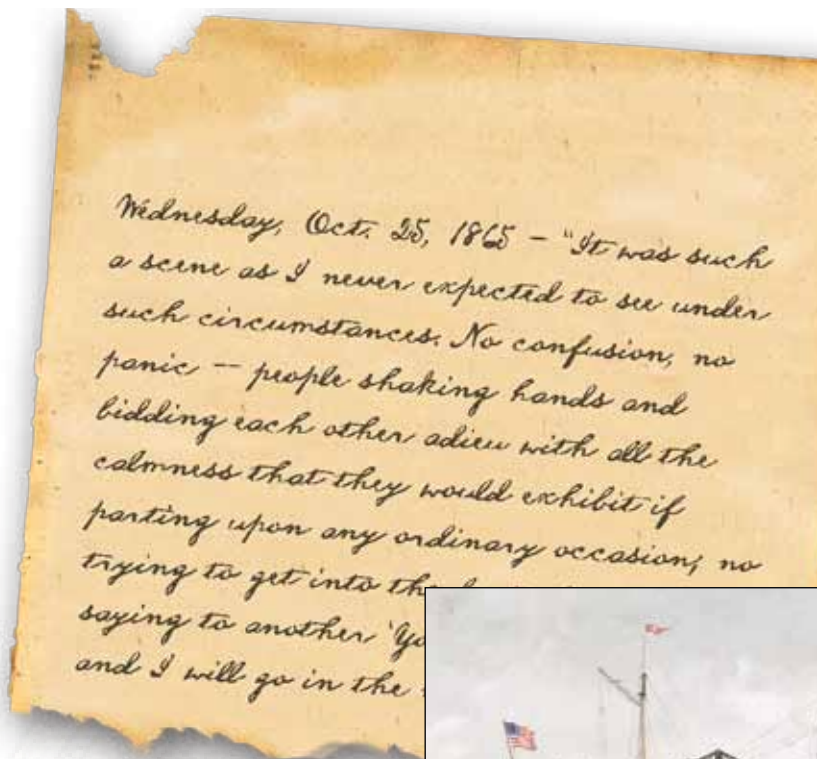 Wednesday, Oct. 25, 1865 – "It was such
a scene as I never expected to see under
such circumstances. No confusion, no
panic -- people shaking hands and
bidding each other adieu with all the
calmness that they would exhibit if
parting upon any ordinary occasion; no
trying to get into the
saying to another 'Yo
and I will go in the